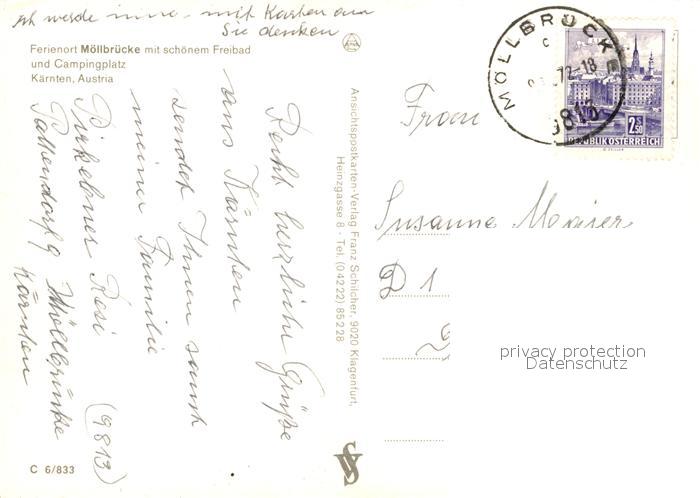 ich werde immer mit Karten an
Sie denken
Ferienort Möllbrücke mit schönem Freibad
und Campingplatz
Kärnten, Austria
Recht herzliche Grüße
aus Kärnten
sendet Ihnen samt
meiner Familie
Resi
(9813)
Pattendorf 9 Möllbrücke
Kärnten
C 6/833
Ansichtspostkarten-Verlag Franz Schilcher, 9020 Klagenfurt,
Heinzgasse 8 - Tel. (0 42 22) 85 2 28
MÖLLBRÜCKE
72-18
9813
2.50
REPUBLIK ÖSTERREICH
Frau
Susanne
D 1
privacy protection
Datenschutz